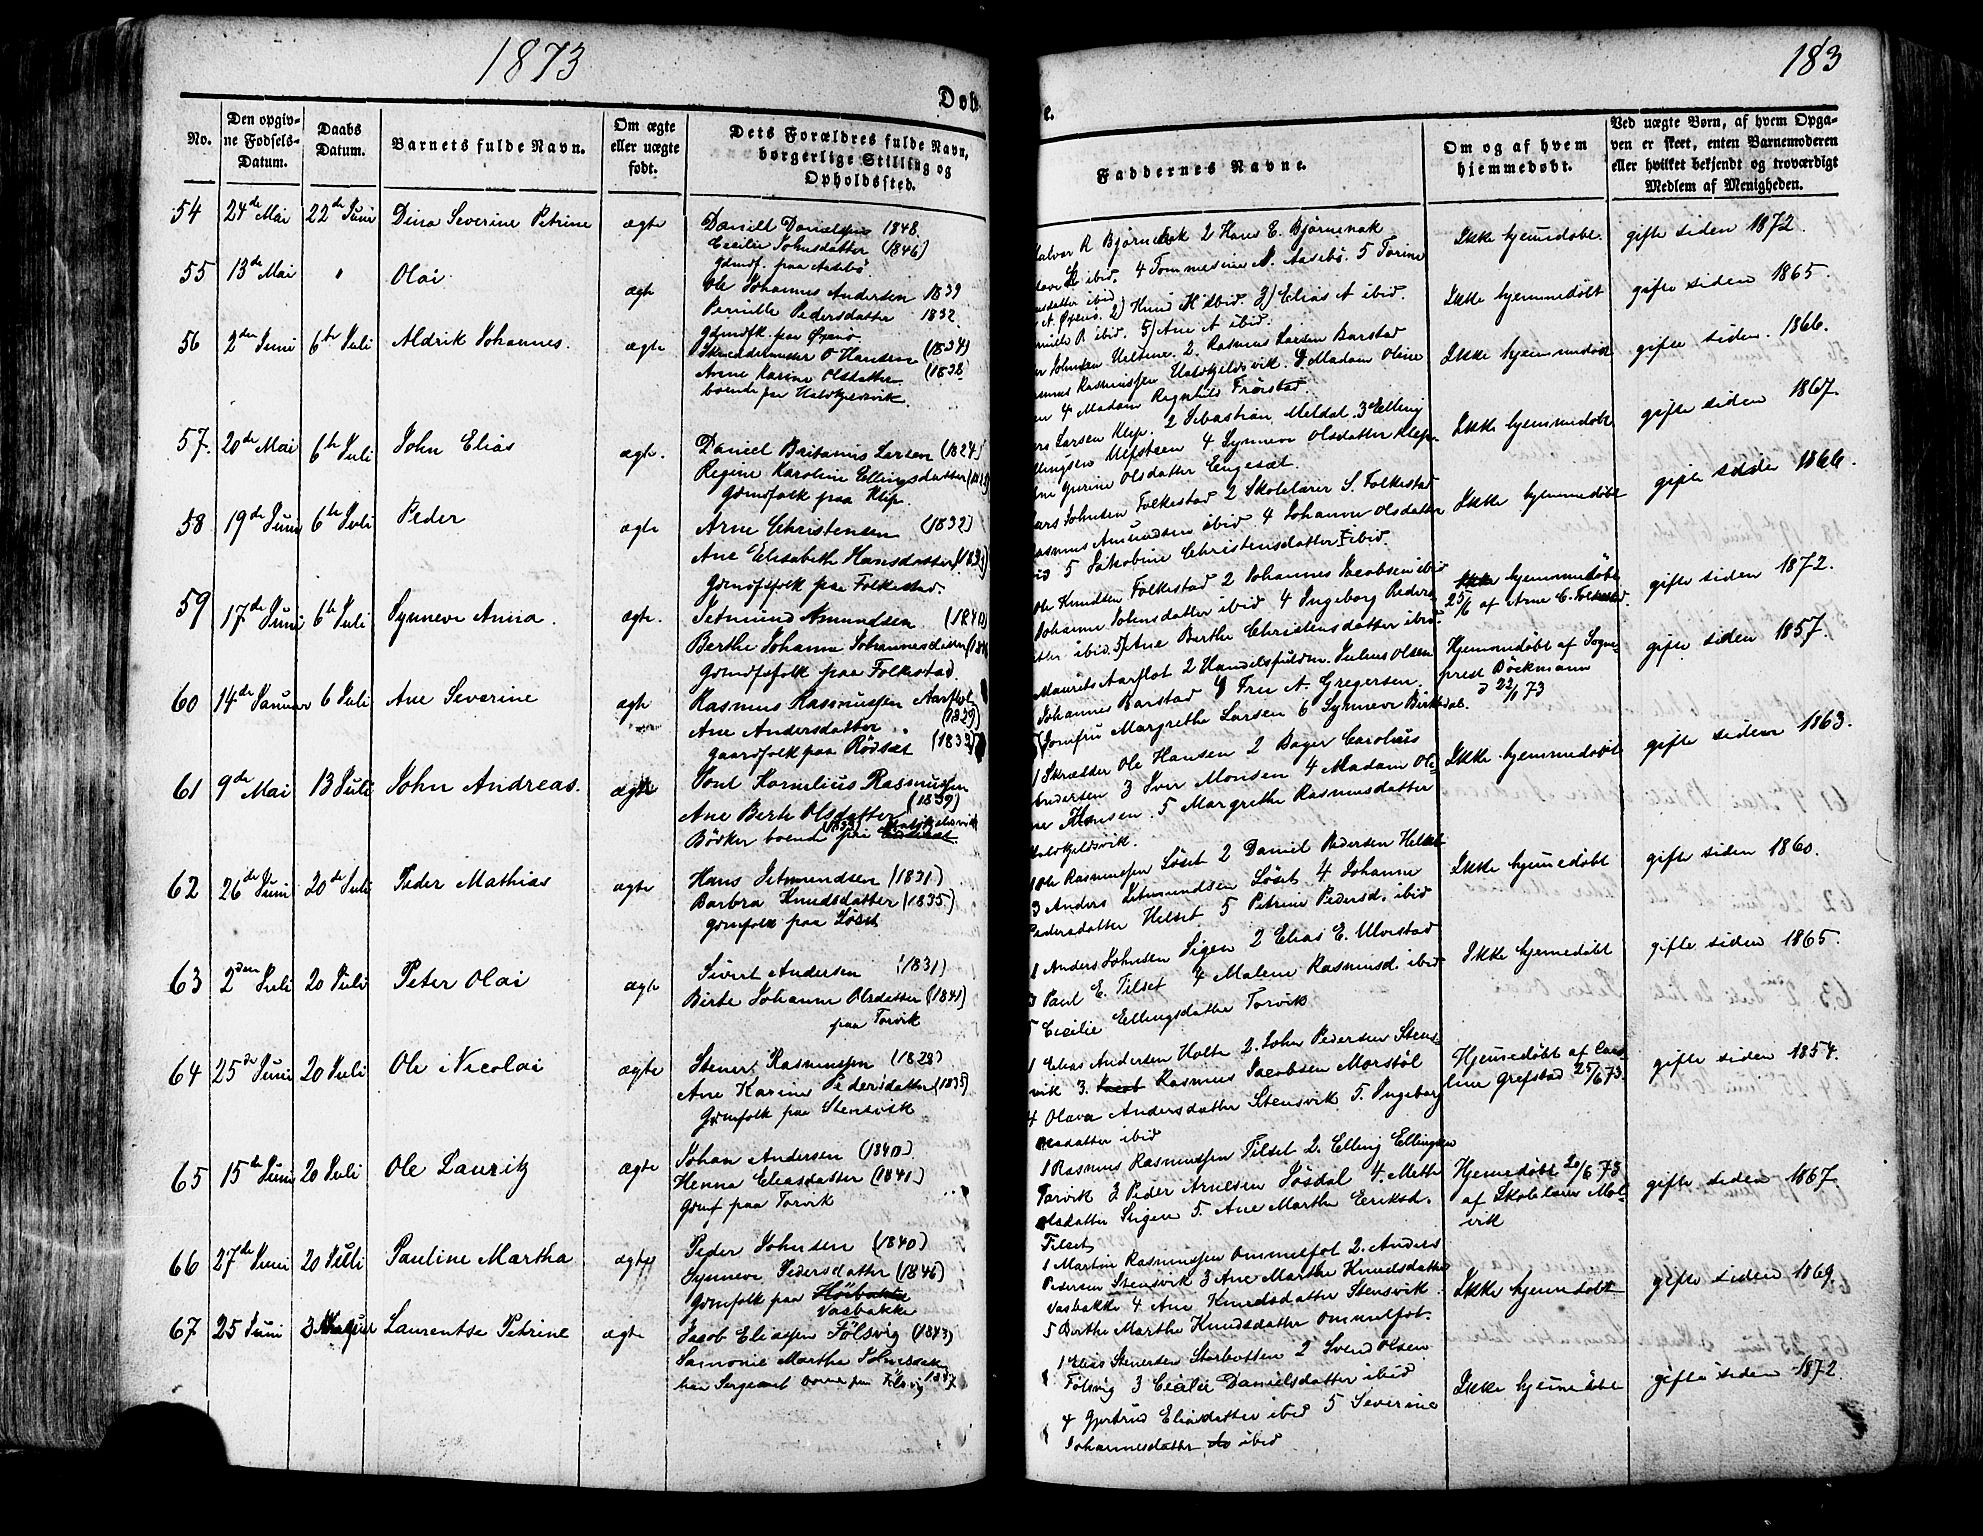 1873
183
Døb
e.
No.
Den opgiv-
ne Fødsels-
Datum.
Daabs
Datum.
Barnets fulde Navn.
Om ægte
eller uægte
født.
Dets Forældres fulde Navn,
borgerlige Stilling og
Opholdssted.
Faddernes Navne.
Om og af hvem
hjemmedøbt.
Ved uægte Børn, af hvem Opga-
ven er skeet, enten Barnemoderen
eller hvilket bekjendt og troværdigt
Medlem af Menigheden.
54 24de Mai 22de Juni Dina Severine Petrine ægte
Daniel Danielsen 1848.
Cecilie Johnsdatter (1846)
Gdmdf. paa Aasebø.
Halvor R Bjørnebak 2 Hans E. Bjørnenak
ibid. 4 Tommesine N. Aasebø. 5 Torine
Ikke hjemmedøbt. gifte siden 1872.
55 13de Mai " Olai ægte
Ole Johannes Andersen 1839
Pernille Pedersdatter 1832.
Gdmdfk. paa Øxnø
datter ibid
A. Øxnø. 2) Knud H ibid. 3) Elias A ibid.
nille R ibid. 5) Ane A ibid.
Ikke hjemmedøbt gifte siden 1865.
56 2den Juni 6te Juli Aldrik Johannes. ægte
O Hansen (1834)
Anne Karine Olsdatter (1838
boende paa Halskjeldsvik.
Johnsen Helsene. 2. Rasmus Larsen Barstad
Rasmussen Halskjeldsvik. Madam Oline
4 Madam Regnhild Frøistad
Ikke hjemmedøbt gifte siden. 1866.
57. 20de Mai 6te Juli John Elias ægte.
Daniel Britanus Larsen (1824)
Regine Karoline Ellingsdatter
Gdmdfolk paa Klep.
Larsen Klep. 2 Sebastian Meldal. 3 Elling
Ellingsen Ulfsteen 4 Synneve Olsdatter Klep.
Gurine Olsdatter Engeset.
Ikke hjemmedøbt gifte siden 1867.
58 19de Juni 6te Juli Peder ægte
Arne Christensen (1832)
Ane Elisabeth Hansdatter (183
Gdmdfsfolk paa Folkestad.
Lars Johnsen Folkestad 2 Skolelærer S. Folkestad
Rasmus Amundsen ibid 4 Johanne Olsdatter
ibid 5 Jakobine Christensdatter ibid.
Ikke hjemmedøbt gifte siden 1866.
59 17de Juni 6te Juli Synneve Anna. ægte.
Setmund Amundsen (1840)
Berthe Johanne Johannesdatter
Gdmdfsfolk paa Folkestad.
Ole Knudsen Folkestad 2 Johannes Jacobsen ibid
Johanne Johnsdatter ibid 4 Ingeborg Peders-
datter ibid. 5) Ane Berthe Christensdatter ibid.
Ikke hjemmedøbt
25/6 af Arne C. Folkestad.
gifte siden 1872.
60 14de Januar 6 Juli Ane Severine ægte
Rasmus Rasmussen Aarflot
(1829)
Ane Andersdatter.
Gaardfolk paa Rødset (1832)
Maurits Aarflot 2 Handelsfuldm. Julius Olsen
Johannes Barstad 4 Fru A. Gregersen.
5 Jomfru Margrethe Larsen 6 Synneve Birkedal.
Hjemmedøbt af Sogne-
prest Böckmann
d 22/1 73
gifte siden 1857.
61 9de Mai 13 Juli John Andreas. ægte
Kornelius Rasmussen
(1839)
Ane Berte Olsdatter
Bødker boende paa
1 Skrædder Ole Hansen 2 Bager Carolius
Andersen 3 Iver Monsen 4 Madam Oli-
ne Hansen. 5 Margrethe Rasmusdatter
Halskjeldsvik.
Ikke hjemmedøbt gifte siden 1863.
62 26de Juni 20de Juli Peder Mathias ægte
Hans Setmundsen (1831)
Barbra Knudsdatter (1835)
Gdmfolk paa Løset
1 Ole Rasmussen Løset 2 Daniel Pedersen Helset
3 Anders Setmundsen Løset 4 Johanne
Pedersdatter Helset 5 Petrine Pedersd. ibid
Ikke hjemedøbt gifte siden 1860.
63 2den Juli 20 Juli Peter Olai ægte
Sivert Andersen (1831)
Birte Johanne Olsdatter (1841)
paa Torvik
1 Anders Johnsen Sigen 2 Elias E. Ulvestad
3 Paul E. Tilset 4 Malene Rasmusd. ibid
5 Cecilie Ellingsdatter Torvik
Ikke hjemedøbt gifte siden 1865.
64 25de Juni 20 Juli Ole Nicolai ægte
Stener Rasmussen (1828)
Ane Karine Pedersdatter (1835)
Gdmfolk paa Stensvik
1 Elias Andersen Holte 2. John Pedersen Stens-
vik 3. Jacob Rasmus Jacobsen Morstøl
4 Olava Andersdatter Stensvik 5. Ingeborg
Olsdatter ibid
Hjemedøbt af Caro-
line Grefstad 25/6 73.
gifte siden 1854.
65 15de Juni 20 Juli Ole Lauritz ægte
Johan Andersen (1840).
Henna Eliasdatter (1841)
Gdmf paa Torvik
1 Rasmus Rasmussen Tilset 2. Elling Ellingsen
Torvik 3 Peder Arnesen Jøsdal 4. Mette
Olsdatter Sigen 5. Ane Marthe Eriksd.
Tilset
Hjemedøbt 20/6 73
af Skolelærer Mol-
vik
gifte siden 1867.
66 27de Juni 20 Juli Pauline Martha ægte
Peder Johnsen (1840)
Synneve Pedersdatter (1846)
Gdmfolk paa
Vasbakke
1 Martin Rasmussen Ommelfot 2. Anders
Pedersen Stensvik 3 Ane Marthe Knudsdatter
Vasbakke 4 Ane Knudsdatter Stensvik.
5 Berthe Marthe Knudsdatter Ommelfot.
Ikke hjemedøbt gifte siden 1869.
67 25 Juni 3 August Laurentse Petrine ægte
Jacob Eliassen Følsvig (1843)
Marthe
Sergeant boende paa Følsvig 1847
1 Elias Stenersen Storbotten 2 Svend Olsen
Følsvig 3 Cecilie Danielsdatter ibid
4 Gjertrud Eliasdatter ibid 5 Severine
Johannesdatter ibid
Ikke hjemedøbt gifte siden 1872.